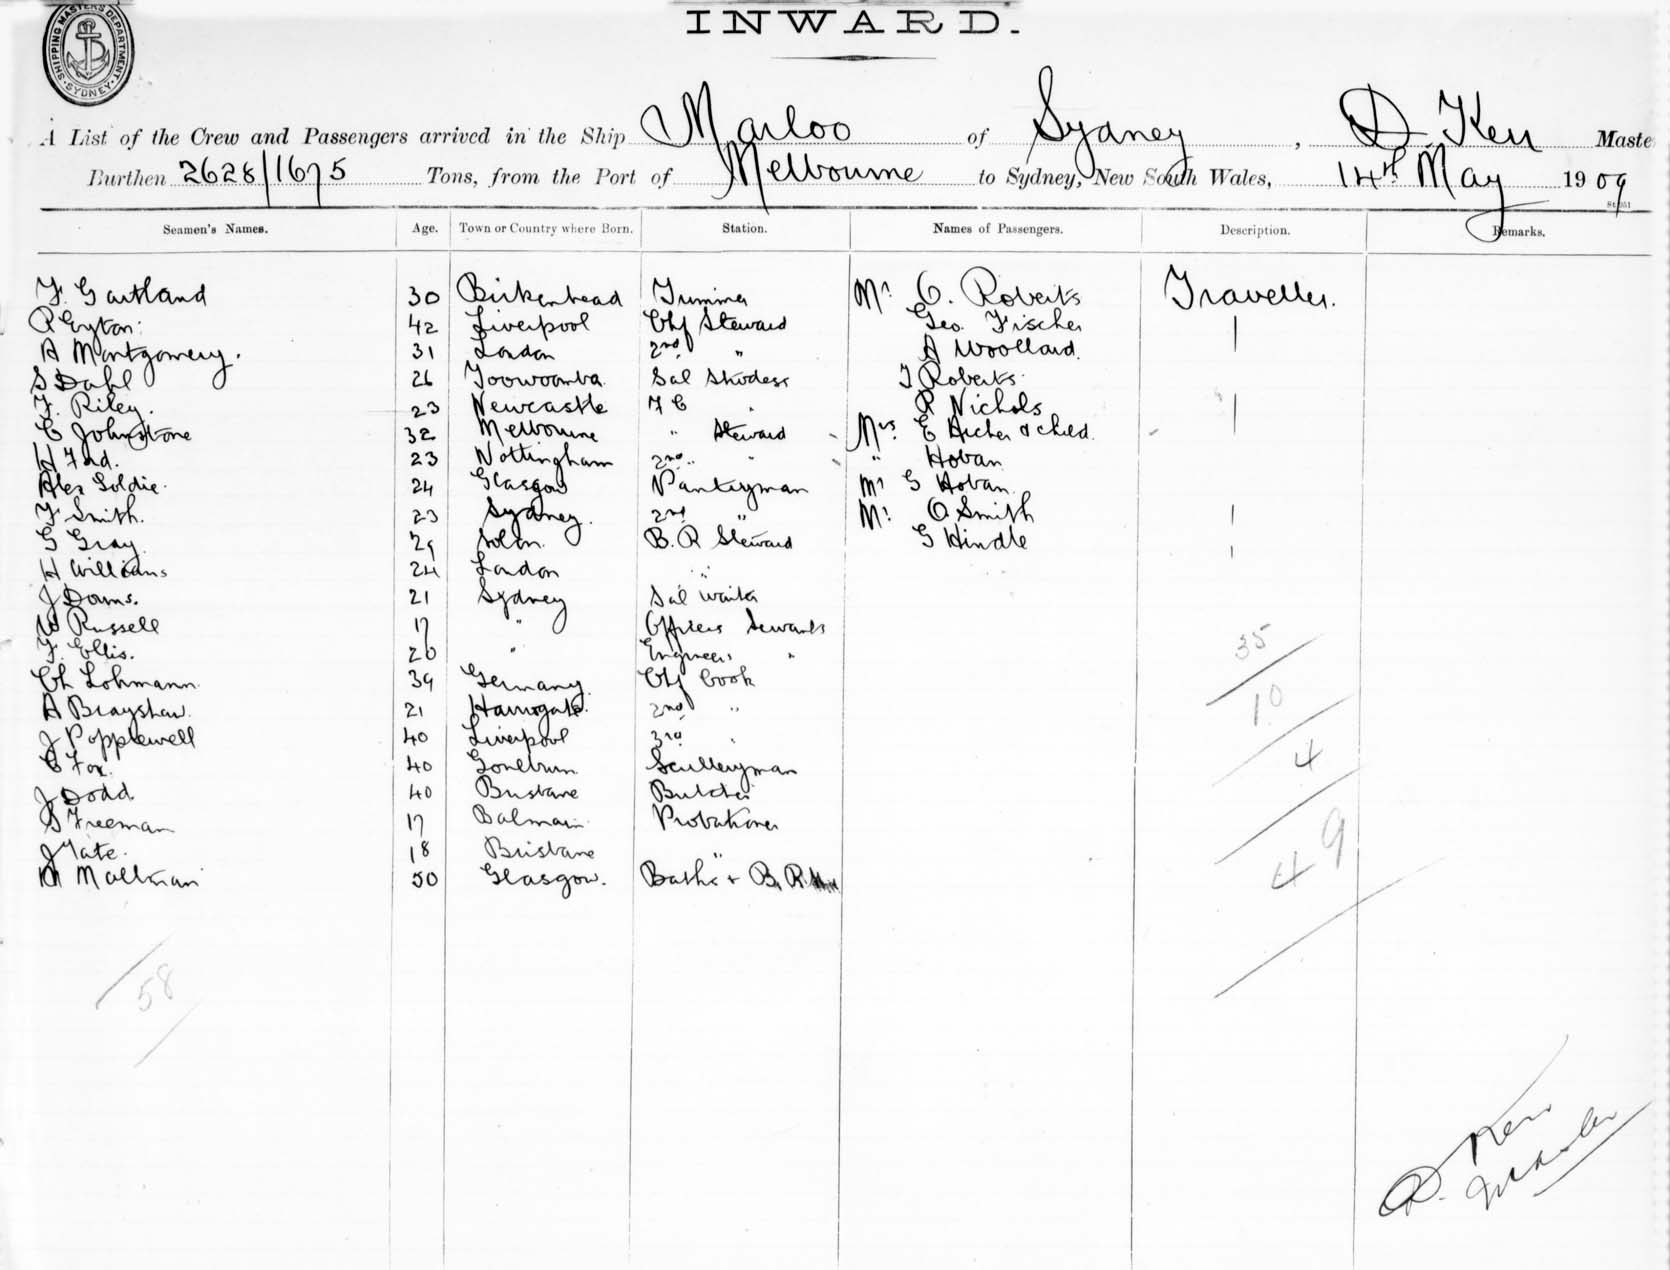 SHIPPING MASTERS DEPARTMENT · SYDNEY ·
INWARD.
A List of the Crew and Passengers arrived in the Ship Marloo of Sydney, D. Kerr Maste
Burthen 2628/1675 Tons, from the Port of Melbourne to Sydney, New South Wales, 14th May 1909
Seamen's Names. Age. Town or Country where Born. Station. Names of Passengers. Description. Remarks.
F. Gartland 30 Birkenhead Trimmer Mr C. Roberts Traveller.
P Eyton: 42 Liverpool Chf Steward Geo. Fischer |
A Montgomery. 31 London 2nd " A Woollard.
S Dahl 26 Toowoomba Sal Stwdess T Roberts
F. Riley. 23 Newcastle F C " R Nichols |
C Johnstone 32 Melbourne " Steward Mrs. E Archer & child.
H Ford. 23 Nottingham 2nd " " " Hoban
Alex Goldie. 24 Glasgow Pantryman Mr G Hoban
F Smith. 23 Sydney. 2nd " Mr. O Smith |
G Gray 29 B. R Steward G Hindle |
H Williams 24 London "
J Dams. 21 Sydney Sal Waiter
W Russell 17 " Officers Servants
F. Ellis. 20 " Engineers "
Ch Lohmann 39 Germany. Chf Cook
A Brayshaw. 21 Harrogate. 2nd "
J Popplewell 40 Liverpool 3rd "
C Fox. 40 Goulburn Sculleryman
J Dodd 40 Brisbane Butcher
S Freeman 17 Balmain Probationer
J Tate. 18 Brisbane "
50 Glasgow. Baths & B. R.
35
10
4
49
58
D. Kerr
Master